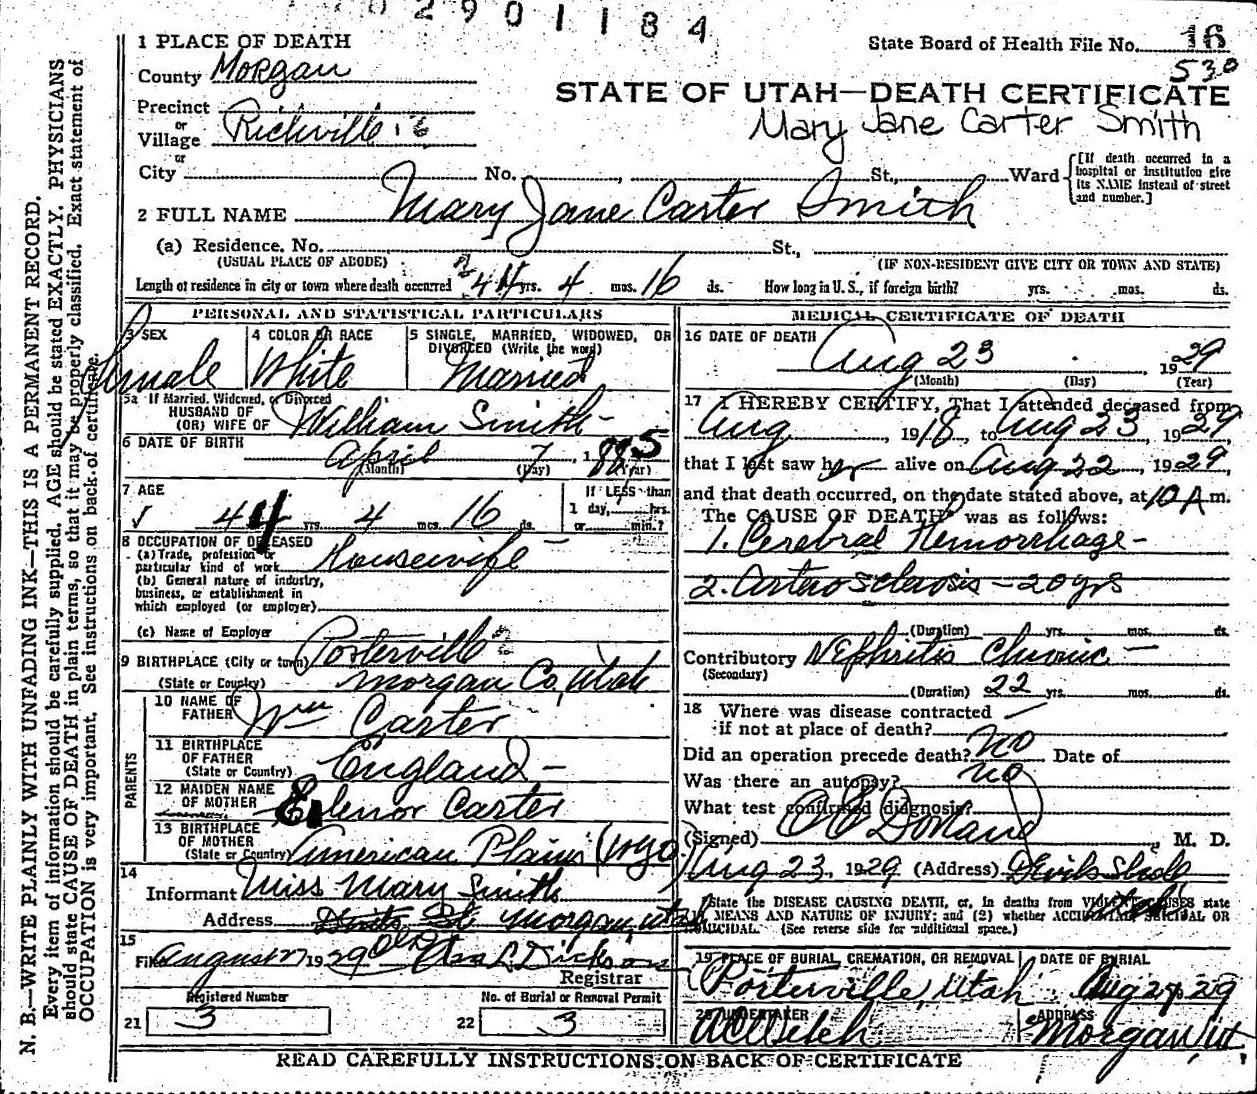 02901184
1 PLACE OF DEATH
State Board of Health File No. 16
530
County Morgan
STATE OF UTAH—DEATH CERTIFICATE
Mary Jane Carter Smith
Precinct
or
Village Richville
or
City No. , St., Ward
[If death occurred in a hospital or institution give its NAME instead of street and number.]
2 FULL NAME Mary Jane Carter Smith
(a) Residence. No. St.,
(USUAL PLACE OF ABODE) (IF NON-RESIDENT GIVE CITY OR TOWN AND STATE)
Length of residence in city or town where death occurred 44 yrs. 4 mos. 16 ds. How long in U. S., if foreign birth? yrs. mos. ds.
PERSONAL AND STATISTICAL PARTICULARS
3 SEX
Female
4 COLOR OR RACE
White
5 SINGLE, MARRIED, WIDOWED, OR DIVORCED (Write the word)
Married
5a If Married, Widowed, or Divorced
HUSBAND OF
(OR) WIFE OF William Smith
6 DATE OF BIRTH
April 7, 1885
(Month) (Day) (Year)
7 AGE
44 yrs. 4 mos. 16 ds.
If LESS than
1 day, hrs.
or min.?
8 OCCUPATION OF DECEASED
(a) Trade, profession or
particular kind of work Housewife
(b) General nature of industry,
business, or establishment in
which employed (or employer)
(c) Name of Employer
9 BIRTHPLACE (City or town) Porterville
(State or Country) Morgan Co, Utah
PARENTS
10 NAME OF
FATHER Wm Carter
11 BIRTHPLACE
OF FATHER
(State or Country) England
12 MAIDEN NAME
OF MOTHER Elenor Carter
13 BIRTHPLACE
OF MOTHER
(State or Country) American Plains (Wyo.)
14
Informant Miss Mary Smith
Address Morgan, Utah
15
Filed August 27 1929 Dickson
Registrar
Registered Number
21 3
No. of Burial or Removal Permit
22 3
MEDICAL CERTIFICATE OF DEATH
16 DATE OF DEATH
Aug 23, 1929
(Month) (Day) (Year)
17 I HEREBY CERTIFY, That I attended deceased from
Aug, 1918, to Aug 23 1929
that I last saw her alive on Aug 22, 1929
and that death occurred, on the date stated above, at 10 A m.
The CAUSE OF DEATH was as follows:
1. Cerebral Hemorrhage-
2. Arterosclerosis - 20 yrs
(Duration) yrs. mos. ds.
Contributory Nephritis Chronic
(Secondary)
(Duration) 22 yrs. mos. ds.
18 Where was disease contracted
if not at place of death?
Did an operation precede death? No Date of
Was there an autopsy? no
What test confirmed diagnosis?
(Signed) M. D.
Aug 23, 1929 (Address) Devils Slide
State the DISEASE CAUSING DEATH, or, in deaths from VIOLENT CAUSES state
MEANS AND NATURE OF INJURY; and (2) whether ACCIDENTAL, SUICIDAL OR
HOMICIDAL. (See reverse side for additional space.)
19 PLACE OF BURIAL, CREMATION, OR REMOVAL
Porterville, Utah
DATE OF BURIAL
Aug 27 29
20 UNDERTAKER
ADDRESS
Morgan, Ut.
READ CAREFULLY INSTRUCTIONS ON BACK OF CERTIFICATE
N. B.—WRITE PLAINLY WITH UNFADING INK—THIS IS A PERMANENT RECORD.
Every item of information should be carefully supplied. AGE should be stated EXACTLY. PHYSICIANS
should state CAUSE OF DEATH in plain terms, so that it may be properly classified. Exact statement of
OCCUPATION is very important. See instructions on back of certificate.